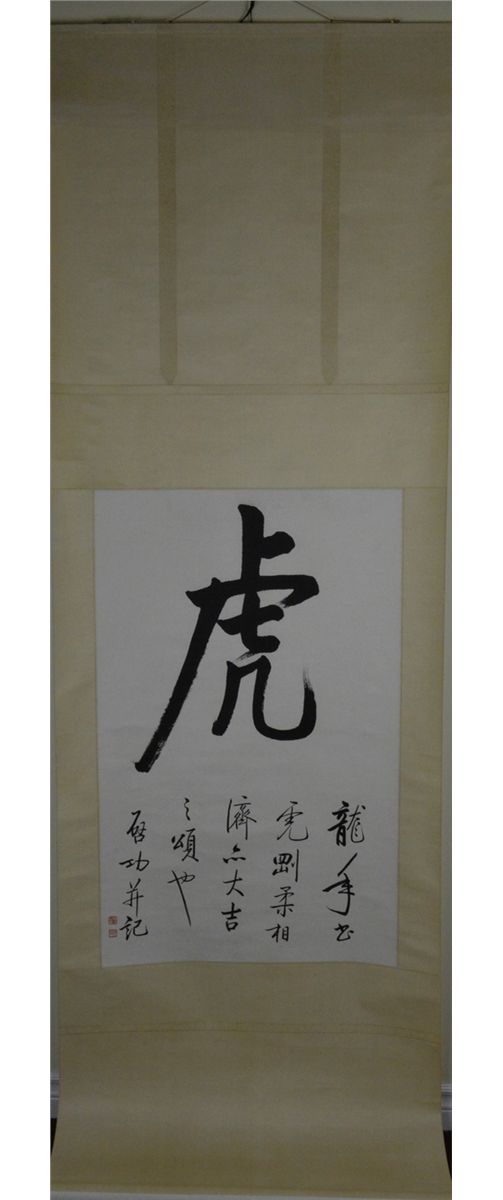 虎
龍年书
虎剛柔相
濟亦大吉
之頌也
啓功并記